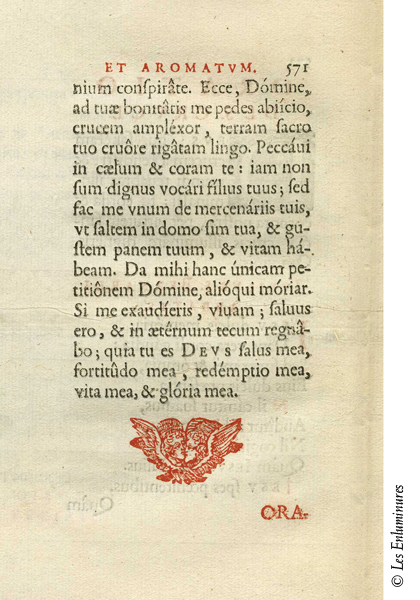 ET AROMATVM. 571
nium conſpirâte. Ecce, Dómine,
ad tuæ bonitâtis me pedes abiício,
crucem ampléxor, terram ſacro
tuo cruôre rigâtam lingo. Peccáui
in cælum & coram te: iam non
ſum dignus vocári fílius tuus; ſed
fac me vnum de mercenáriis tuis,
vt ſaltem in domo ſim tua, & gu-
ſtem panem tuum, & vitam há-
beam. Da mihi hanc únicam pe-
titiônem Dómine, alióqui móriar.
Si me exaudíeris, viuam; ſaluus
ero, & in ætérnum tecum regnâ-
bo; quia tu es DEVS ſalus mea,
fortitûdo mea, redémptio mea,
vita mea, & glória mea.
ORA-
© Les Enluminures